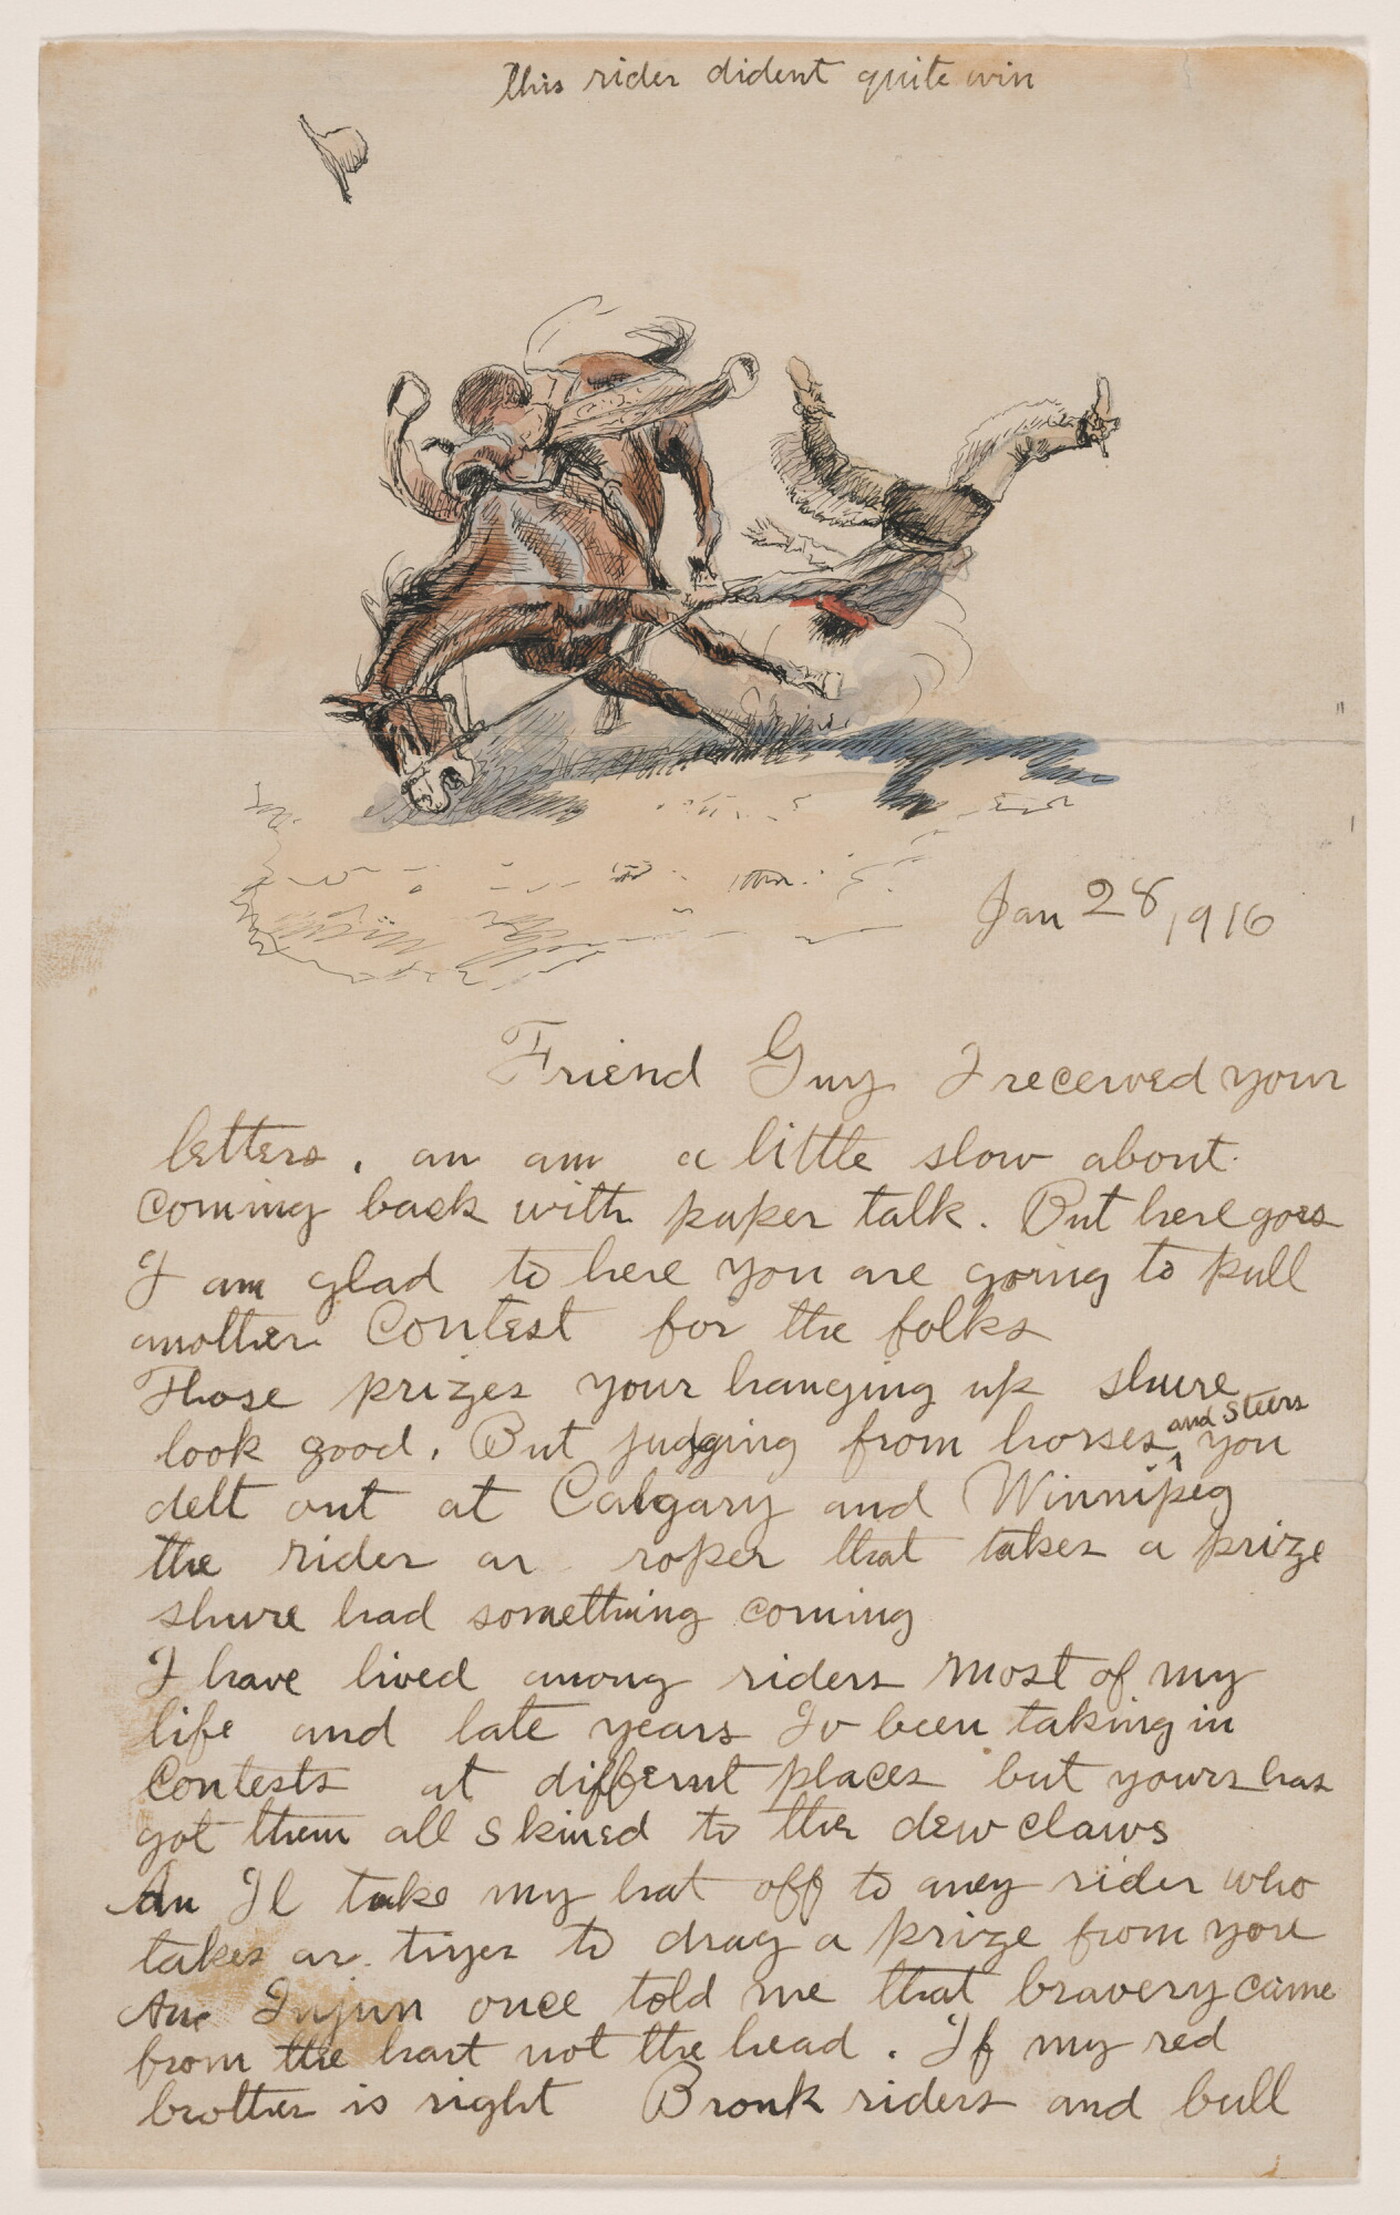 This rider dident quite win
Jan 28, 1916
Friend Guy I received your
letters. an am a little slow about
coming back with paper talk. But here goes
I am glad to here you are going to pull
another Contest for the folks
Those prizes your hanging up shure
look good. But judging from horses and Steers you
delt out at Calgary and Winnipeg
the rider or roper that takes a prize
shure had something coming
I have lived among riders most of my
life and late years Iv been taking in
Contests at differnt places but yours has
got them all skined to the dew claws
An Il take my hat off to aney rider who
takes or tryes to drag a prize from you
An Injun once told me that bravery came
from the hart not the head. If my red
brother is right Bronk riders and bull